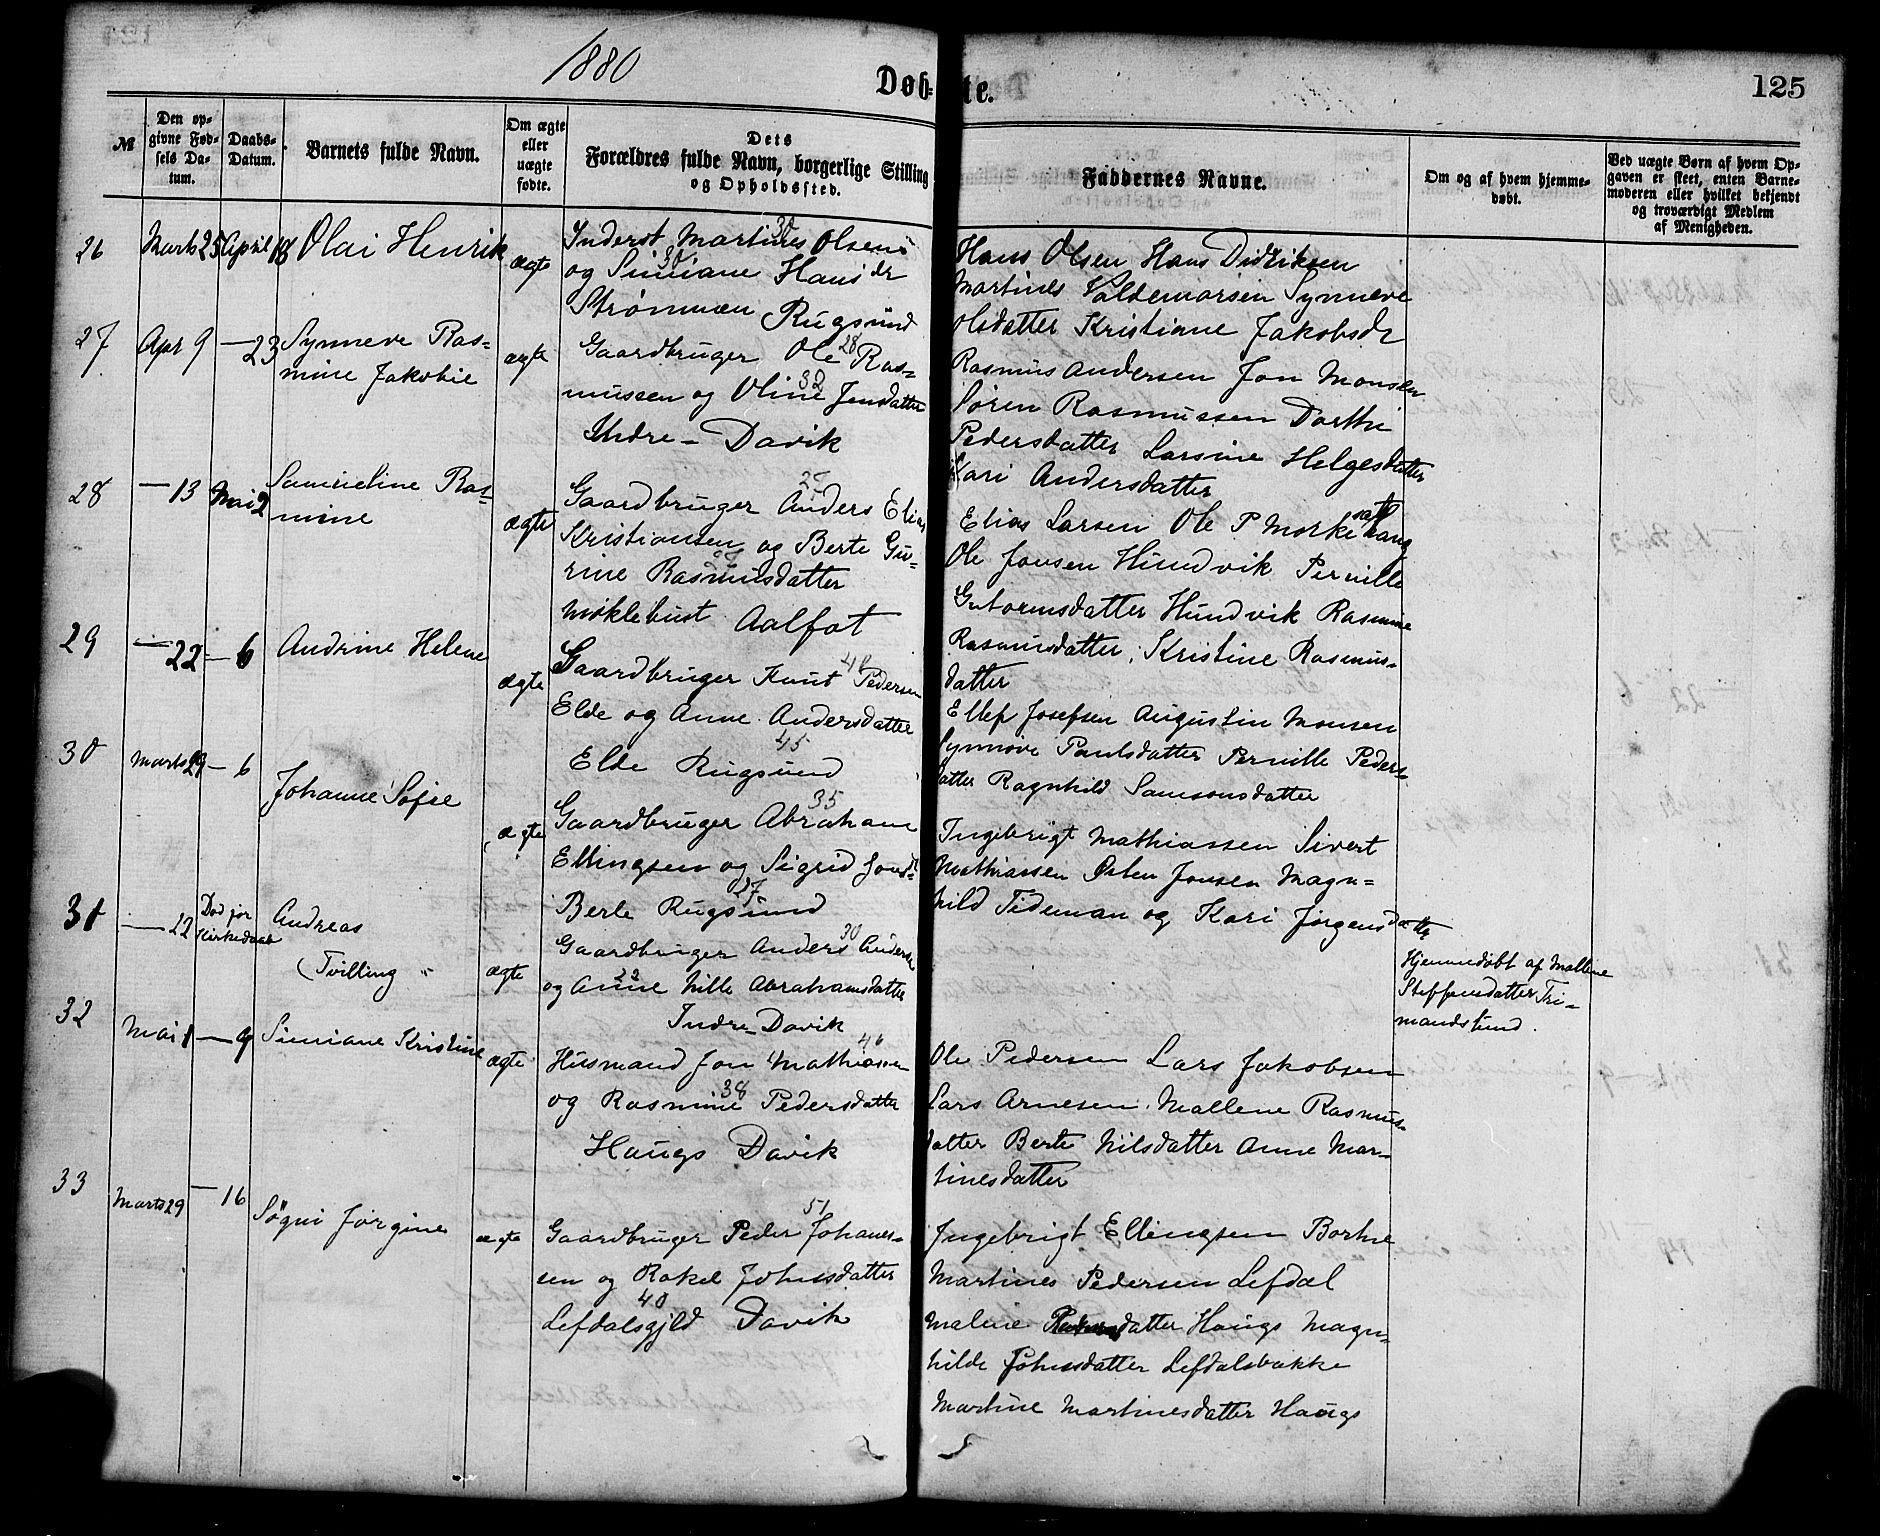 1880
Døbte.
125
№
Den opgivne Fødsels Datum.
Daabs-Datum.
Barnets fulde Navn.
Om ægte eller uægte fødte.
Dets Forældres fulde Navn, borgerlige Stilling og Opholdssted.
Faddernes Navne.
Om og af hvem hjemmedøbt.
Ved uægte Børn af hvem Opgaven er skeet, enten Barnemoderen eller hvilket bekjendt og troværdigt Medlem af Menigheden.
26
Marts 25
April 18
Olai Henrik
ægte
Inderst Martines Olsen 30
og Simiane Hansdr 30
Strømmen Rugsund
Hans Olsen Hans Didriksen
Martines Valdemarsen Synneve
Olsdatter Kristiane Jakobsdr
27
Apr 9
— 23
Synneve Ras-
mine Jakobie
ægte
Gaardbruger Ole Ras- 28
mussen og Oline Jensdatter 32
Indre - Davik
Rasmus Andersen Jon Monsen
Søren Rasmussen Dorthe
Pedersdatter Larsine Helgesdatter
Kari Andersdatter
28
— 13
Mai 2
Samueline Ras-
mine
ægte
Gaardbruger Anders Elias 25
Kristiansen og Berte Gu-
rine Rasmusdatter
Myklebust Aalfot
Elias Larsen Ole P Morke
Ole Jonsen Hundvik Pernille
Gutormsdatter Hundvik Rasmine
Rasmusdatter, Kristine Rasmus-
datter
29
— 22
— 6
Andrine Helene
ægte
Gaardbruger Knut Pedersen
Elde og Anne Andersdatter
45
Elde Rugsund
Ellef Josefsen Augustin Monsen
Synnøve Paulsdatter Pernille Peders-
datter Ragnhild Samsonsdatter
30
Marts 29
— 6
Johanne Sofie
ægte
Gaardbruger Abraham 35
Ellingsen og Sigrid Jonsdr
27
Berle Rugsund
Ingebrigt Mathiassen Sivert
Mathiassen Østen Jonsen Magn-
hild Tideman og Kari Jørgensdatter
31
— 22
Død før
Kirkedaab
Andreas
(Tvilling
ægte
Gaardbruger Anders Anders 30
og Anne Nille Abrahamsdatter 22
Indre Davik
Hjemmedøbt af Mallene
Steffensdatter Tri-
mandslund.
32
Mai 1
— 9
Simiane Kristine
ægte
Husmand Jon Mathiasen 46
og Rasmine Pedersdatter 38
Haugs Davik
Ole Pedersen Lars Jakobsen
Lars Arnesen Mallene Rasmus-
datter Berte Nilsdatter Anne Mar-
tinesdatter
33
Marts 29
— 16
Søgni Jørgine
ægte
Gaardbruger Peder Johanes- 51
sen og Rakel Johnsdatter
40
Lefdalsgjld Davik
Ingebrigt Ellingsen Bortne
Martines Pedersen Lefdal
Malene datter Haugs Magn-
hilde Johnsdatter Lefdalsbakke
Martine Martinesdatter Haugs